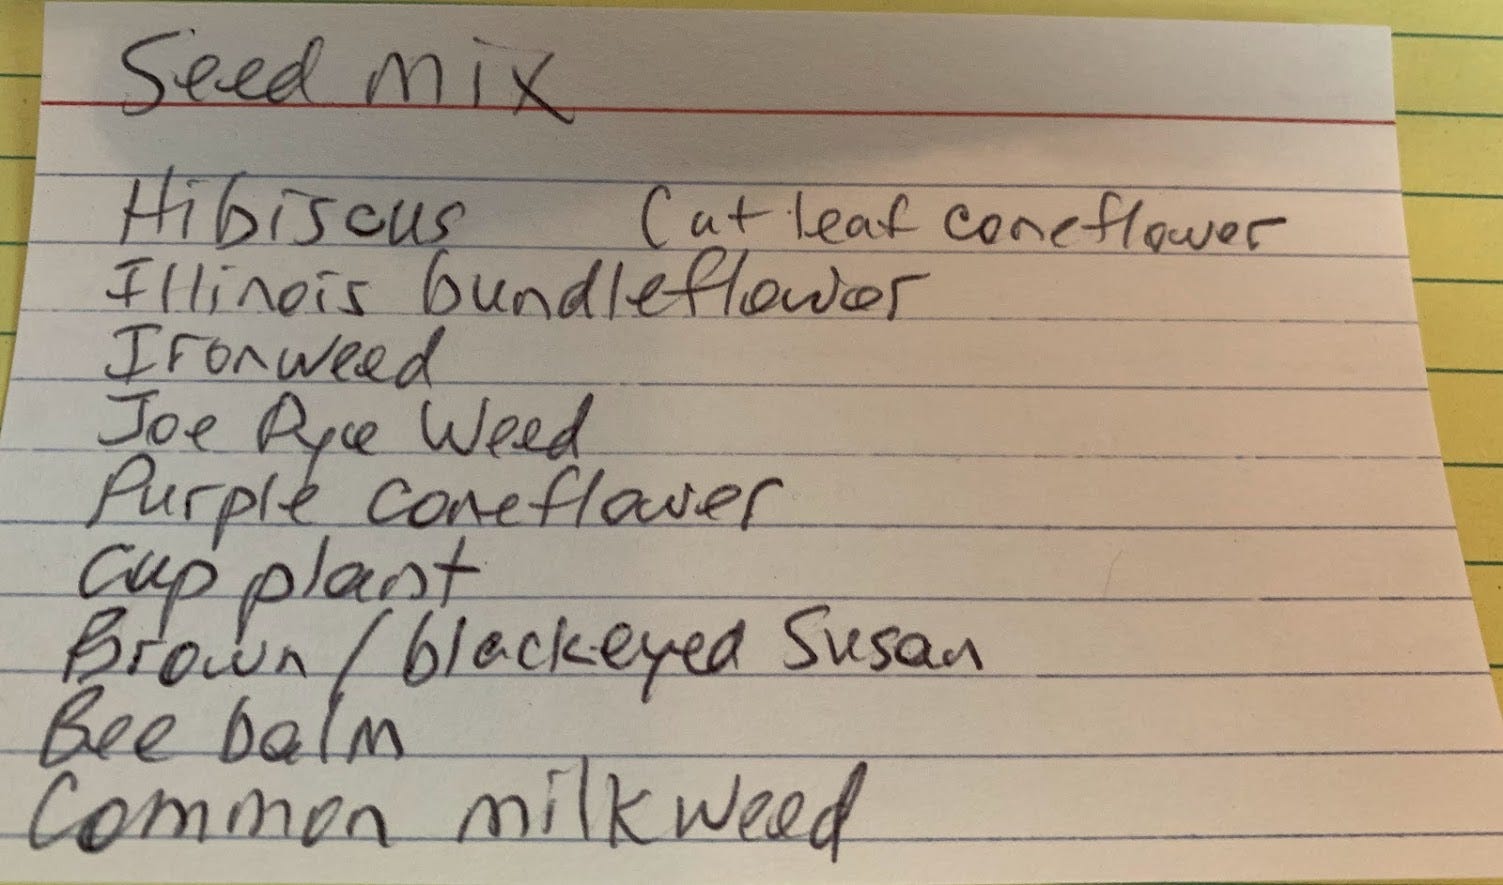 Seed mix
Hibiscus Cut leaf coneflower
Illinois bundleflower
Ironweed
Joe Pye Weed
Purple coneflower
Cup plant
Brown / blackeyed Susan
Bee balm
Common milkweed